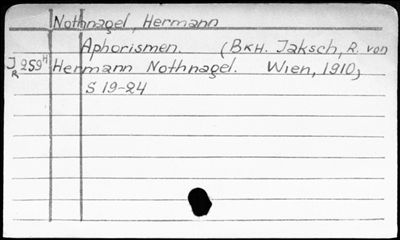 Nothnagel, Hermann
Aphorismen. (Bkh. Jaksch, R. von
J 259H Hermann Nothnagel. Wien, 1910,
R
S 19-24